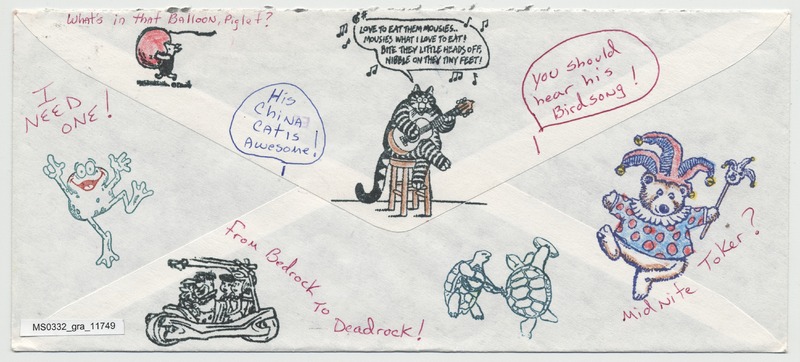 What's in that Balloon, Piglet?
LOVE TO EAT THEM MOUSIES..
MOUSIES WHAT I LOVE TO EAT!
BITE THEY LITTLE HEADS OFF,
NIBBLE ON THEY TINY FEET!
You should
hear his
Birdsong!
I
NEED
ONE!
His
CHINA
CAT is
Awesome!
From Bedrock To
Deadrock!
MidNite Toker?
MS0332_gra_11749